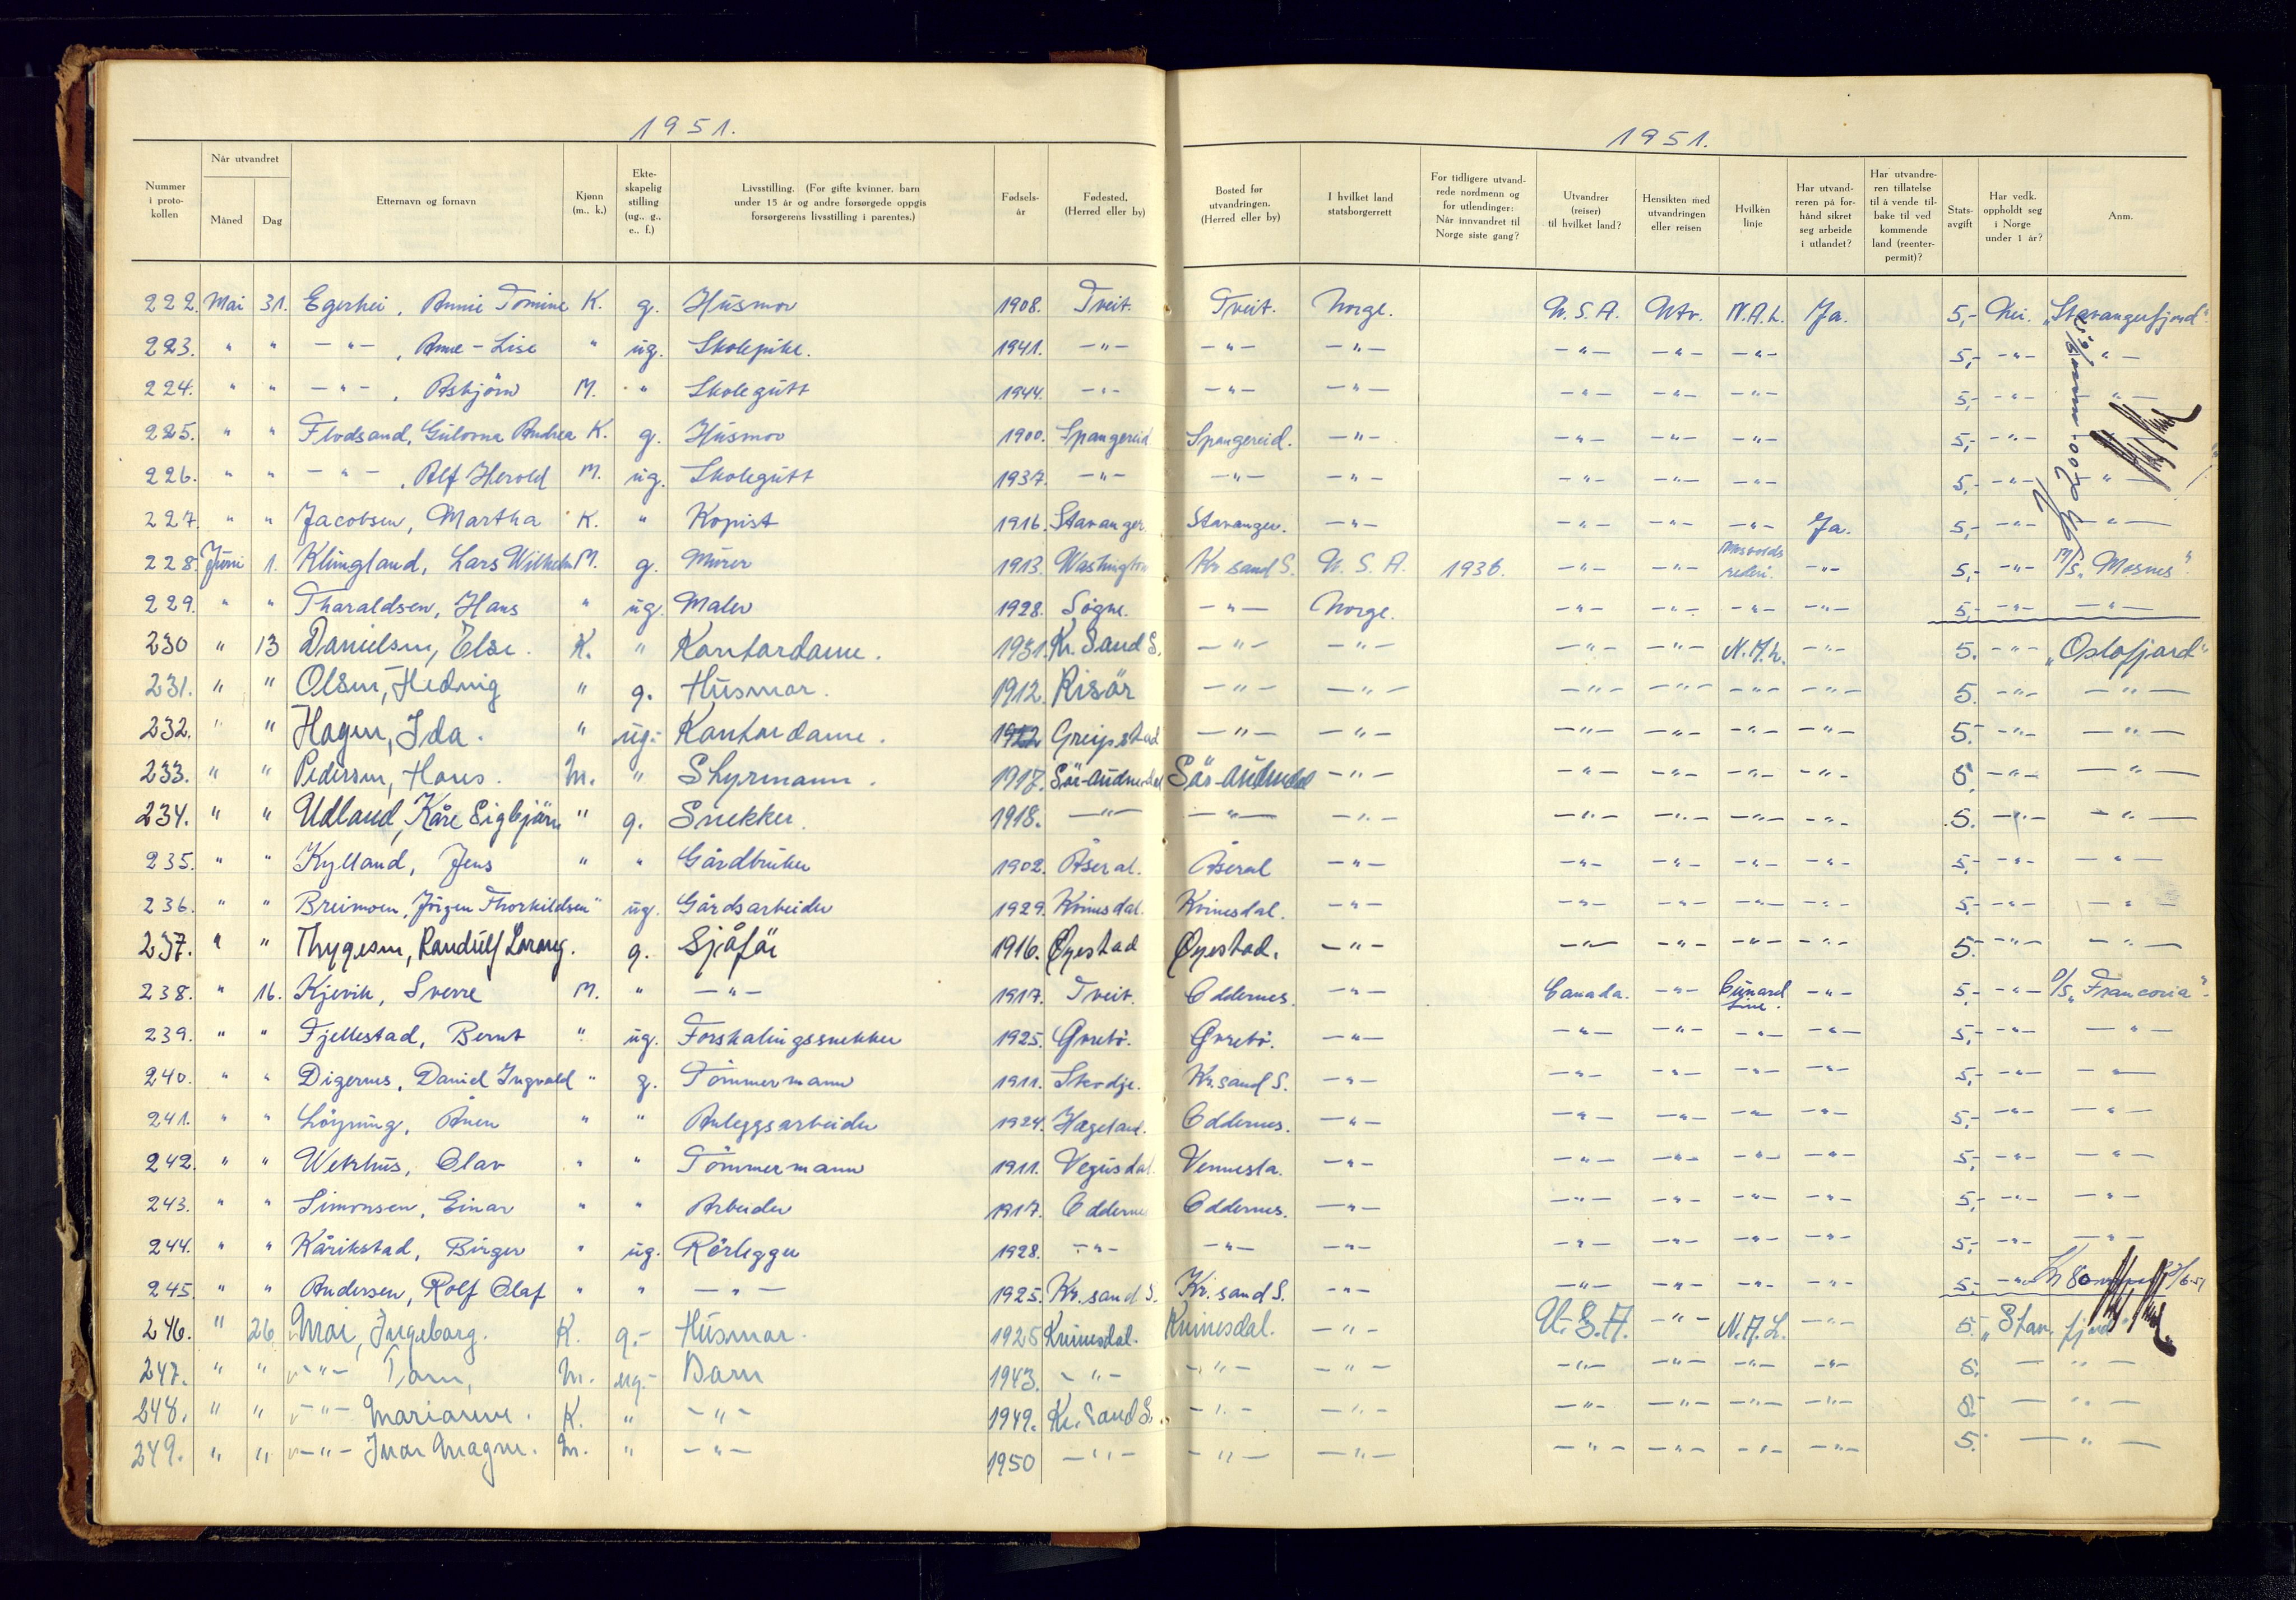 1951.
1951.
Nummer i proto-kollen | Når utvandret | Måned | Dag | Etternavn og fornavn | Kjønn (m., k.) | Ekte-skapelig stilling (ug., g., e., f.) | Livsstilling. (For gifte kvinner, barn under 15 år og andre forsørgede oppgis forsørgerens livsstilling i parentes.) | Fødsels-år | Fødested. (Herred eller by) | Bosted før utvandringen. (Herred eller by) | I hvilket land statsborgerrett | For tidligere utvand-rede nordmenn og for utlendinger: Når innvandret til Norge siste gang? | Utvandrer (reiser) til hvilket land? | Hensikten med utvandringen eller reisen | Hvilken linje | Har utvand-reren på for-hånd sikret seg arbeide i utlandet? | Har utvandre-ren tillatelse til å vende til-bake til ved kommende land (reenter-permit)? | Stats-avgift | Har vedk. oppholdt seg i Norge under 1 år? | Anm.
222. Mai 31. Egerhei, Annie Tomine K. g. Husmor 1908. Tveit. Tveit. Norge. U.S.A. Utv. N.A.L. Ja. 5,- Nei. "Stavangerfjord"
223. " " -"- , Anne-Lise " ug. Skolepike. 1941. -"- -"- -"- -"- -"- -"- 5,- -"- -"-
224. " " -"- , Asbjörn M. " Skolegutt 1944. -"- -"- -"- -"- -"- -"- 5,- -"- -"-
225. " " Flodsand, Gulovna Andrea K. g. Husmor 1900. Spangereid Spangereid. -"- -"- -"- -"- 5,- -"-
226. " " -"- , Alf Herold M. ug. Skolegutt 1937. -"- -"- -"- -"- -"- -"- 5,- -"- -"-
227. " " Jacobsen, Martha K. " Kopist 1916. Stavanger. Stavanger. -"- -"- -"- -"- Ja. 5,- -"- -"-
228. Juni 1. Klungland, Lars Wilhelm M. g. Murer 1913. Washington Kr sand S. U.S.A. 1936. -"- -"- Mosvolds rederi. -"- 5,- -"- M/S. "Mosnes".
229. " " Tharaldsen, Hans " ug. Maler 1928. Sögne. -"- Norge. -"- -"- -"- -"- 5,- -"- -"-
230 " 13 Danielsen, Else. K. " Kontordame. 1931. Kr. Sand S. -"- -"- -"- -"- N.A.L. -"- 5. -"- "Oslofjord"
231. " " Olsen, Hedvig " g. Husmor. 1912 Risör -"- -"- -"- -"- -"- -"- 5. -"- -"-
232. " " Hagen, Ida. " ug.- Kontordame. Greipstad -"- -"- -"- -"- -"- -"- 5.- -"- -"-
233. " " Pedersen, Hans. M. " Styrmann. 1917. Sör-Audnedal Sör-Audnedal -"- -"- -"- -"- -"- 5. -"- -"-
234. " " Udland, Kåre Sigbjörn " g. Snekker. 1918. -"- -"- -"- -"- -"- -"- -"- 5. -"- -"-
235. " " Kylland, Jens " " Gårdbruker 1902. Åseral. Åseral -"- -"- -"- -"- -"- 5,- -"- -"-
236. " " Breimoen, Jörgen Thorkildsen " ug. Gårdsarbeider 1929. Kvinesdal. Kvinesdal. -"- -"- -"- -"- -"- 5,- -"- -"-
237. " " Thygesen, Randulf Lorang. g. Sjåför 1916. Øyestad Øyestad. -"- -"- -"- -"- -"- 5.- -"- -"-
238. " 16. Kjevik, Sverre M. " -"- 1917. Tveit. Oddernes. -"- Canada. -"- Cunard Line. -"- 5,- -"- D/S. "Franconia".
239. " " Fjellestad, Bernt " ug. Forskalingssnekker 1925. Øvrebö. Øvrebö. -"- -"- -"- -"- -"- 5,- -"- -"-
240. " " Digernes, Daniel Ingvald " g. Tömmermann 1911. Skodje. Kr.sand S. -"- -"- -"- -"- -"- 5,- -"- -"-
241. " " Löyning, Ånen " " Anleggsarbeider 1924. Hægeland. Oddernes. -"- -"- -"- -"- -"- 5,- -"- -"-
242. " " Wetrhus, Olav " " Tömmermann 1911. Vegusdal. Vennesla. -"- -"- -"- -"- -"- 5,- -"- -"-
243. " " Simonsen, Einar " " Arbeider 1917. Oddernes Oddernes. -"- -"- -"- -"- -"- 5,- -"- -"-
244. " " Kårikstad, Birger " ug. Rörlegger 1928. -"- -"- -"- -"- -"- -"- -"- 5,- -"- -"-
245. " " Andersen, Rolf Olaf " " -"- 1925. Kr.sand S. Kr.sand S. -"- -"- -"- -"- -"- 5,- -"-
246. " 26 Moi, Ingeborg. K. g.- Husmor. 1925 Kvinesdal. Kvinesdal. -"- U.S.A. -"- N.A.L. -"- 5.- "Stav. fjord"
247. " " -"- Tom, M. ug.- Barn 1943. -"- -"- -"- -"- -"- -"- -"- 5. -"-
248. " " -"- Marianne. K. " -"- 1949. Kr. Sand S. -"- -"- -"- -"- -"- -"- 5. -"-
249. " " -"- Inar Magne. M. " -"- 1950 -"- -"- -"- -"- -"- -"- -"- 5. -"-